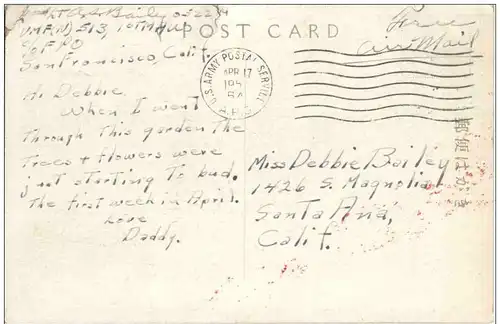 Bailey
POST CARD
Free
513,
air Mail
C/O F.P.O
San Francisco, Calif.
U.S. ARMY POSTAL SERVICE
APR 17
195
A.P.O.
Hi Debbie
When I went
through this garden the
trees + flowers were
just starting to bud.
The first week in April.
Love
Daddy.
Miss Debbie Bailey
1426 S. Magnolia
Santa Ana,
Calif.
郵便はがき